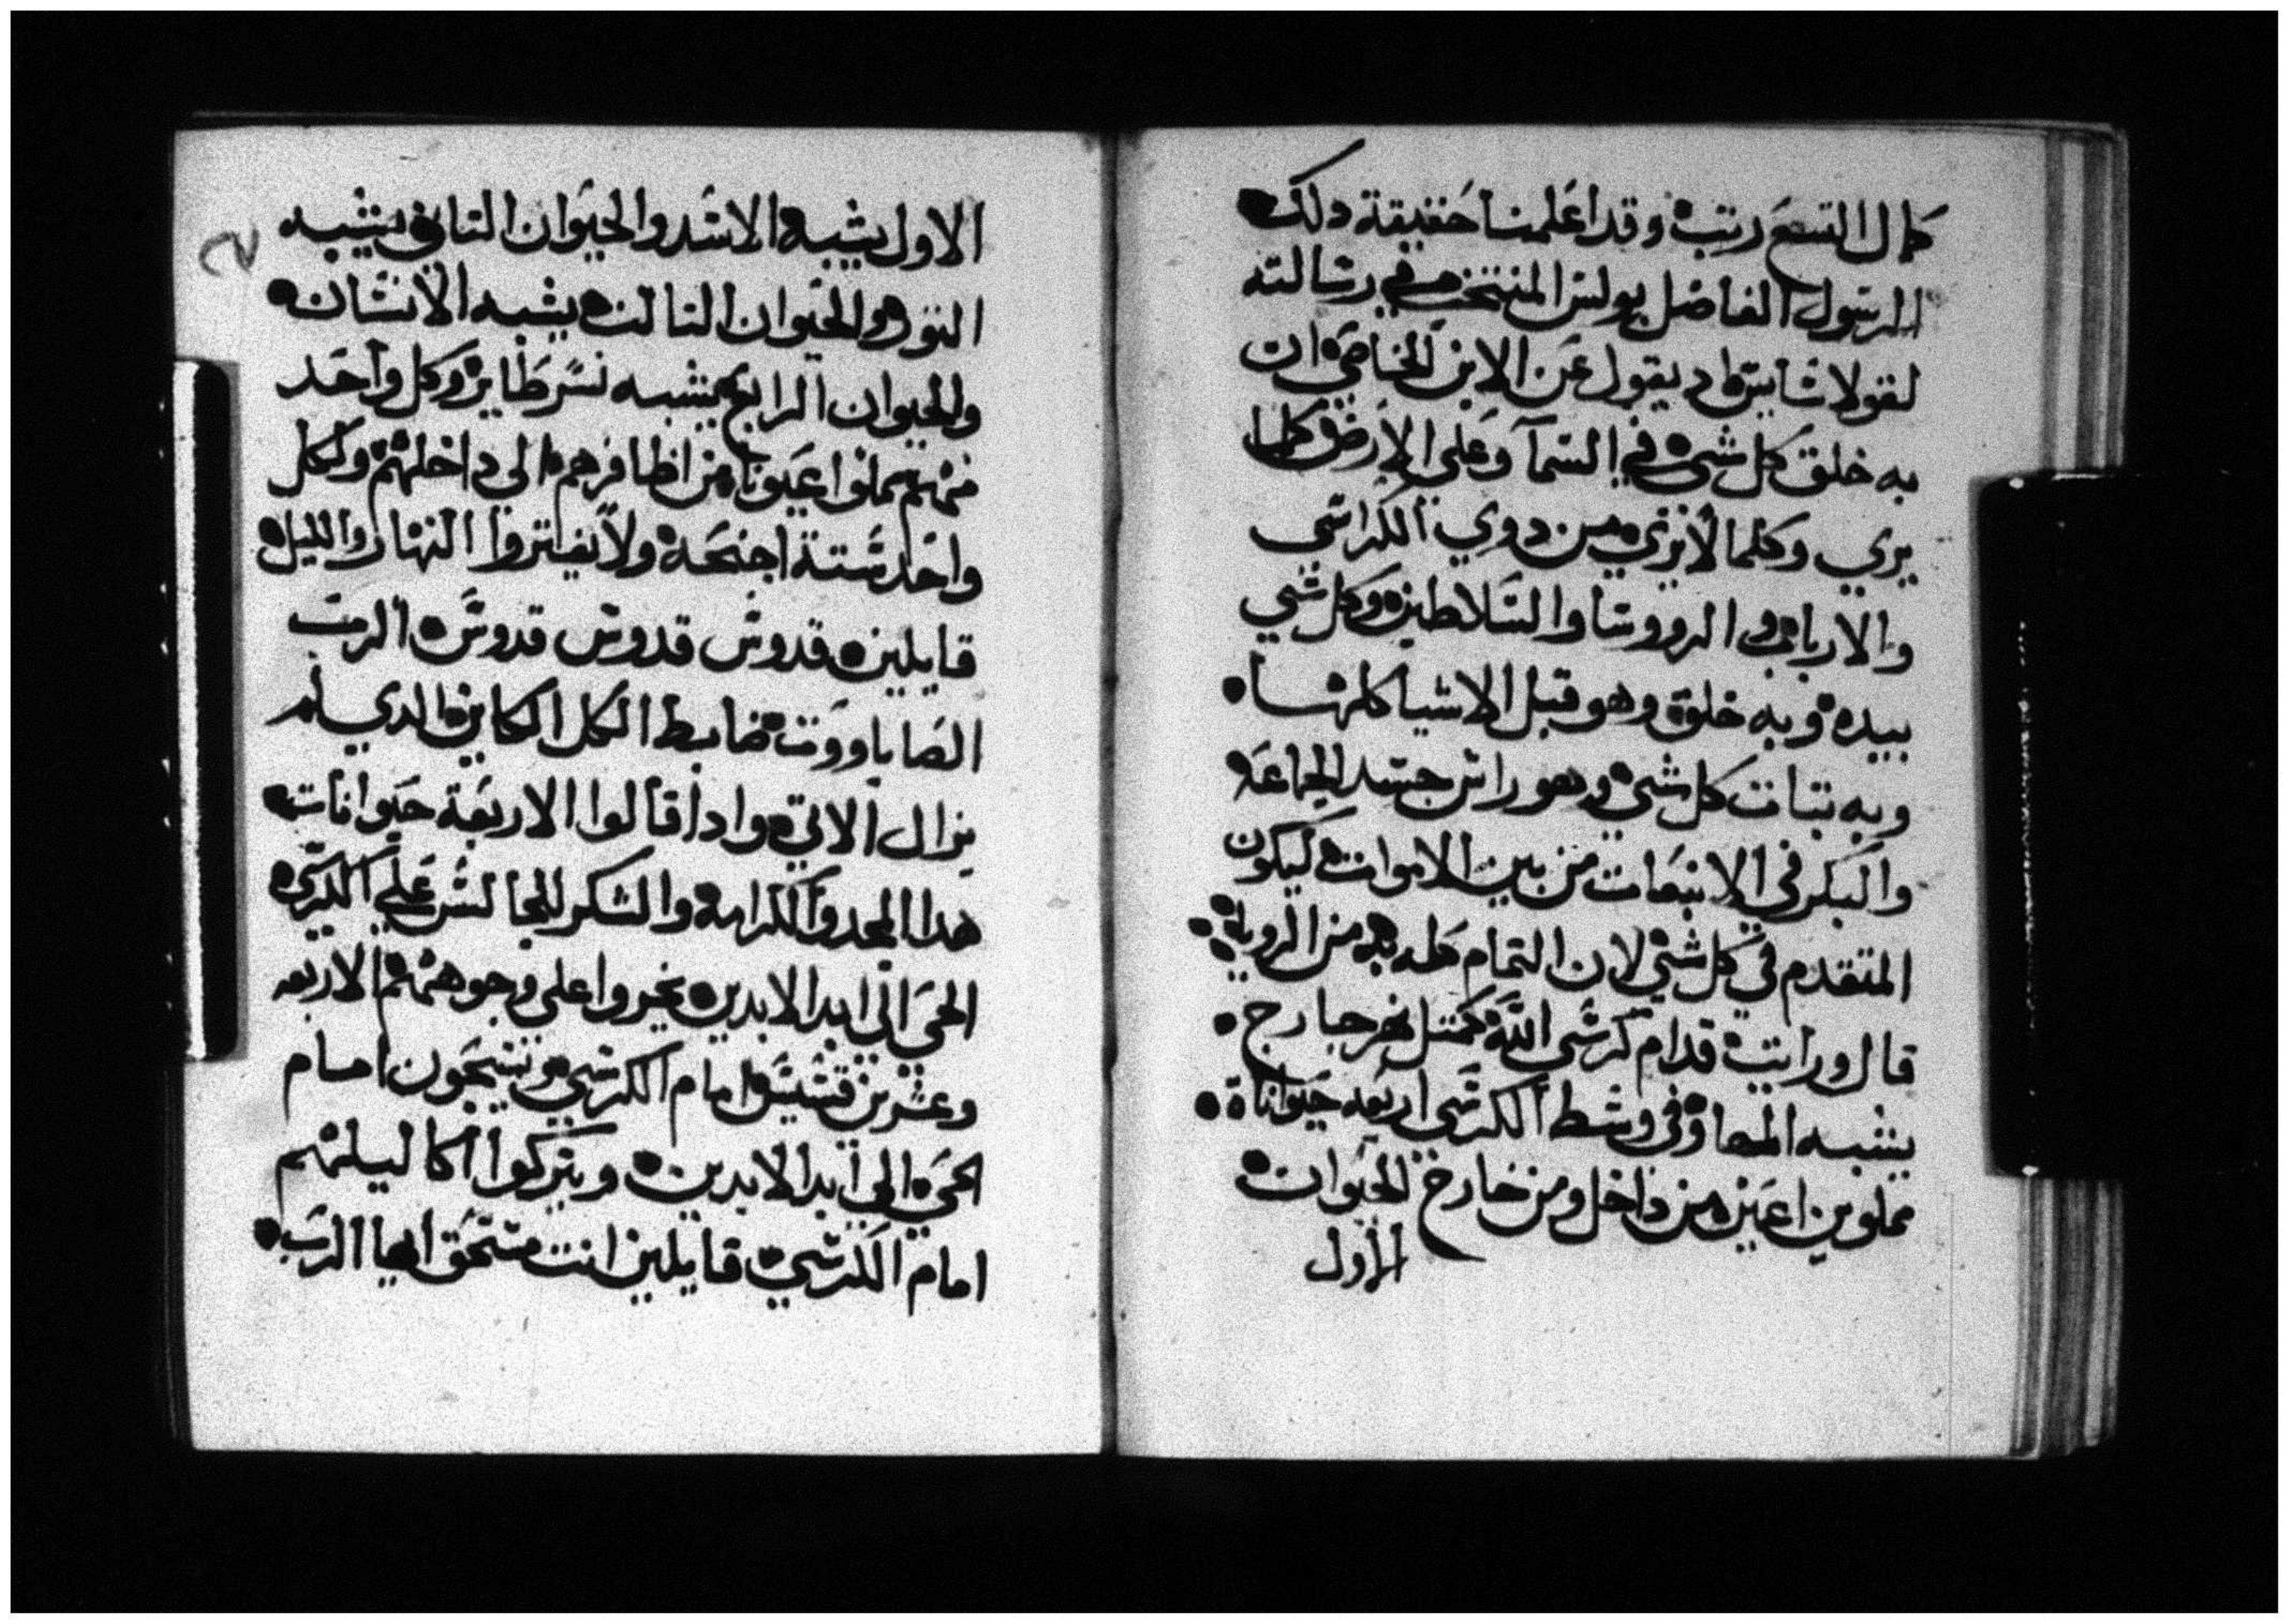 كمال التسع رتب وقد اعلمنا حقيقة دلك
الرسول الفاضل بولس المنتخب في رسالته
لقولاسايس اد يقول عن الابن الخاص ان
به خلق كل شي في السما وعلى الارض كلما
يري وكلما لا يري من دوي الكراسي
والارباب و الرووسا والسلاطين وكل شي
بيده وبه خلق وهو قبل الاشيا كلها
وبه تبات كل شي وهو راس جسد الجماعه
والبكر في الانبعات من بين الاموات ليكون
المتقدم في كل شي لان التمام كله به من الروية
قال ورايت قدام كرسي الله كمتل نهر جارج
يشبه المها وفي وسط الكرسي اربعه حيواناة
مملوين اعين من داخل ومن خارج الحيوان
الاول
الاول يشبه الاسد والحيوان التاني يشبه
التور والحيوان التالت يشبه الانسان
والحيوان الرابع يشبه نسر طاير وكل واحد
منهم مملوا عيونا من اظافرهم الي داخلهم ولكل
واحد ستة اجنحة ولا يفتروا النهار والليل
قايلين قدوس قدوس قدوس الرب
الصاباووت ضابط الكل الكاين الدي لم
يزال الاتي وادا قالوا الاربعة حيوانات
هدا المجد والكرامه والشكر للجالس علي الكرسي
الحي الي ابد الابدين يخروا علي وجوههم الاربعه
وعشرين قسيس امام الكرسي ويسبحون امام
الحي الي ابد الابدين ويتركوا اكاليلهم
امام الكرسي قايلين انت مستحق ايها الرب